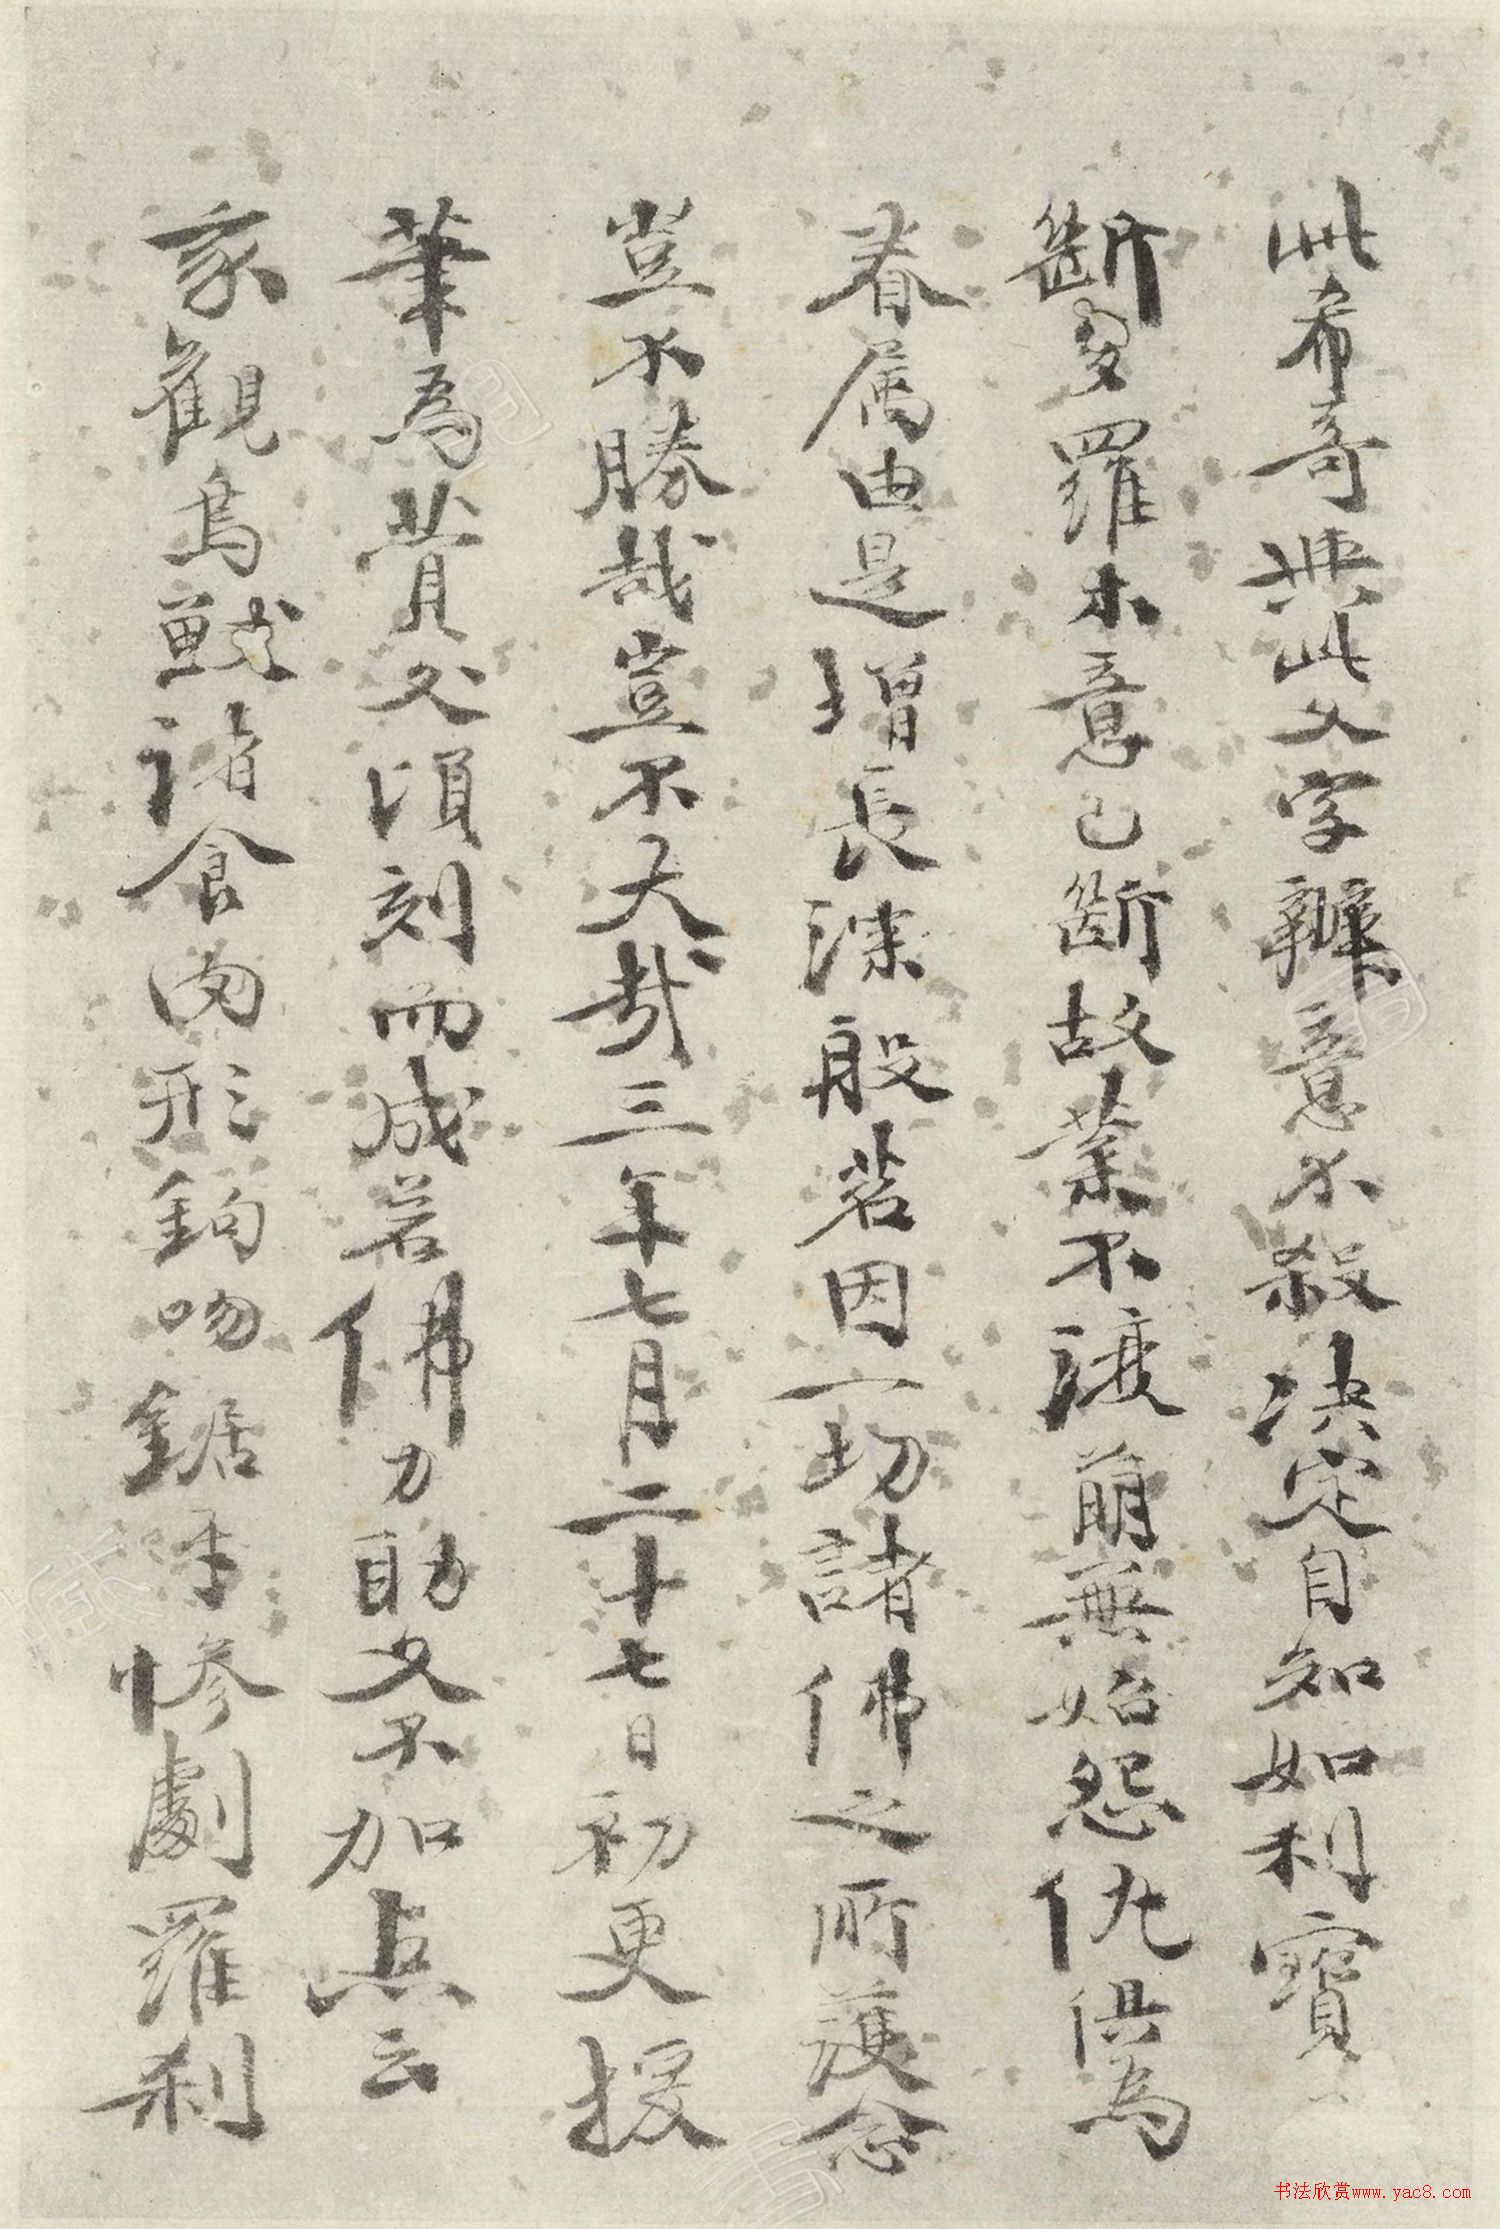 此希奇典此文字辦意不殺决定自知如利寳
斷多羅木意已斷故業不復萌無始怨仇俱為
眷属由是增長深般若因一切諸佛之所護念
豈不勝哉豈不大哉三年七月二十七日初更援
筆為贊父湏刻而成若佛力助文不加点云
我觀鳥獸諸食肉形鉤吻鋸牙惨劇羅刹
书法欣赏www.yac8.com